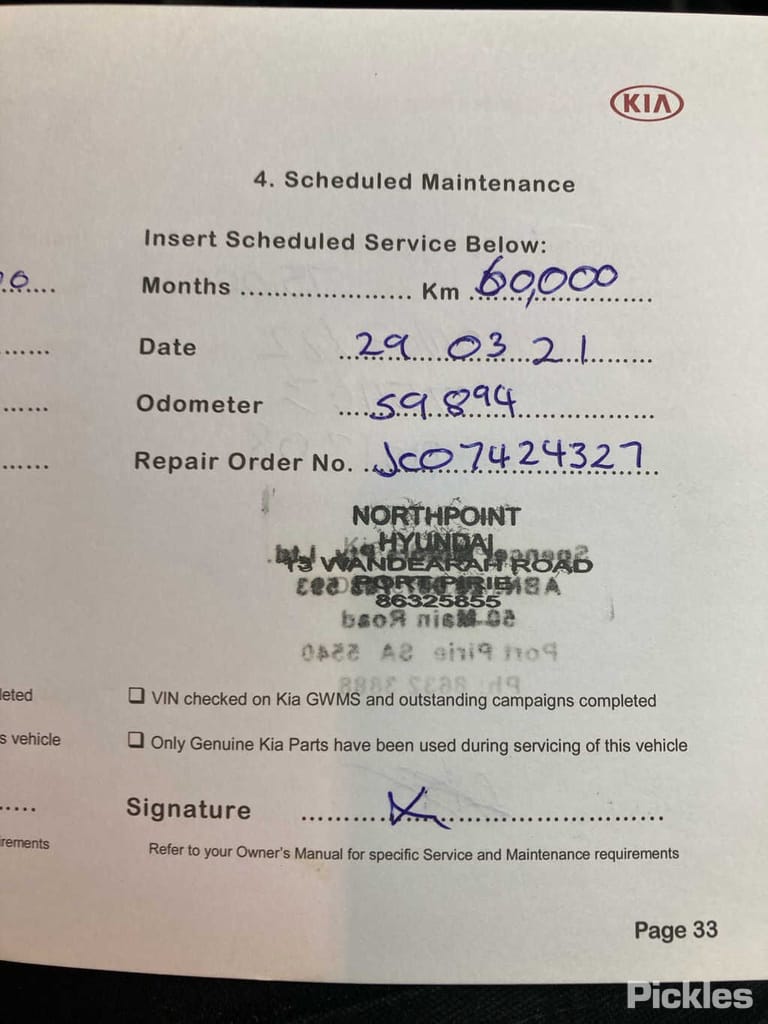 KIA
4. Scheduled Maintenance
Insert Scheduled Service Below:
Months ...................... Km 60,000
Date 29 03 21
Odometer 59 894
Repair Order No. JC07424327
NORTHPOINT
HYUNDAI
13 WANDEARAH ROAD
PORT PIRIE
86325855
50 Main Road
Port Pirie SA 5540
Ph: 8632 3888
leted
☐ VIN checked on Kia GWMS and outstanding campaigns completed
s vehicle
☐ Only Genuine Kia Parts have been used during servicing of this vehicle
Signature
irements
Refer to your Owner's Manual for specific Service and Maintenance requirements
Page 33
Pickles